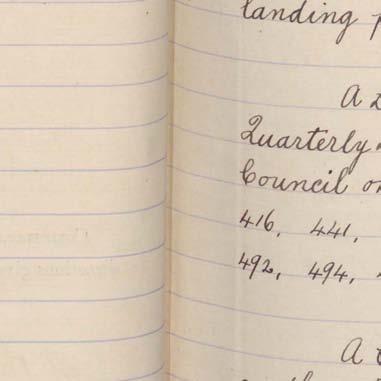 landing
A
Quarterly
Council
416, 441,
492, 494,
A